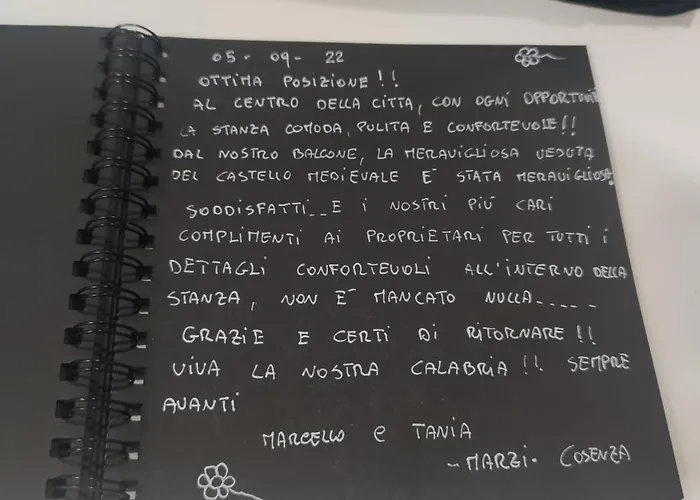 05 - 09 - 22
OTTIMA POSIZIONE!!
AL CENTRO DELLA CITTA, CON OGNI OPPORTUNITÀ
LA STANZA COMODA, PULITA E CONFORTEVOLE!!
DAL NOSTRO BALCONE, LA MERAVIGLIOSA VEDUTA
DEL CASTELLO MEDIEVALE E' STATA MERAVIGLIOSA
SODDISFATTI__E I NOSTRI PIÙ CARI
COMPLIMENTI AI PROPRIETARI PER TUTTI I
DETTAGLI CONFORTEVOLI ALL'INTERNO DELLA
STANZA, NON E' MANCATO NULLA-----
GRAZIE E CERTI DI RITORNARE!!
VIVA LA NOSTRA CALABRIA!! SEMPRE
AVANTI
MARCELLO e TANIA
- MARZI - COSENZA